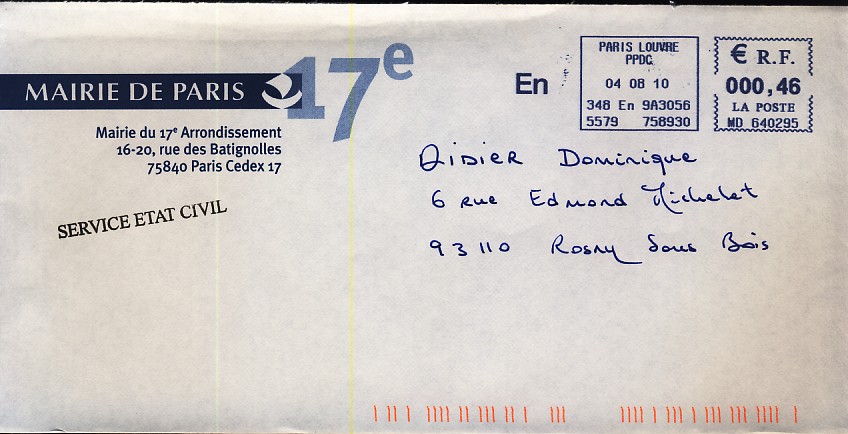 MAIRIE DE PARIS
17e
Mairie du 17e Arrondissement
16-20, rue des Batignolles
75840 Paris Cedex 17
SERVICE ETAT CIVIL
En
PARIS LOUVRE
PPDC
04 08 10
348 En 9A3056
5579 758930
€ R.F.
000,46
LA POSTE
MD 640295
DIDIER Dominique
6 rue Edmond Michelet
93110 Rosny Sous Bois